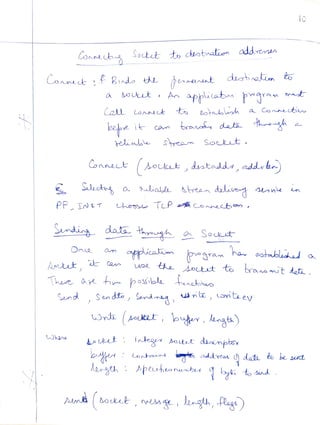 Connecting Socket to destination addresses
Connect : f Binds the permanent destination to
a socket. An application program must
Call connect to establish a Connection
before it can transfer data through a
reliable stream Socket.
Connect (socket, destaddr, addrlen)
Selecting a reliable stream delivery service in
PF_INET chooses TCP connection.
Sending data through a Socket
Once an application program has established a
socket, it can use the socket to transmit data.
There are five possible functions
Send, Sendto, Sendmsg, write, writeev
Write (socket, buffer, length)
where socket : Integer socket descriptor
buffer : Contains address of data to be sent
length : Specifies number of bytes to send.
send (socket, message, length, flags)